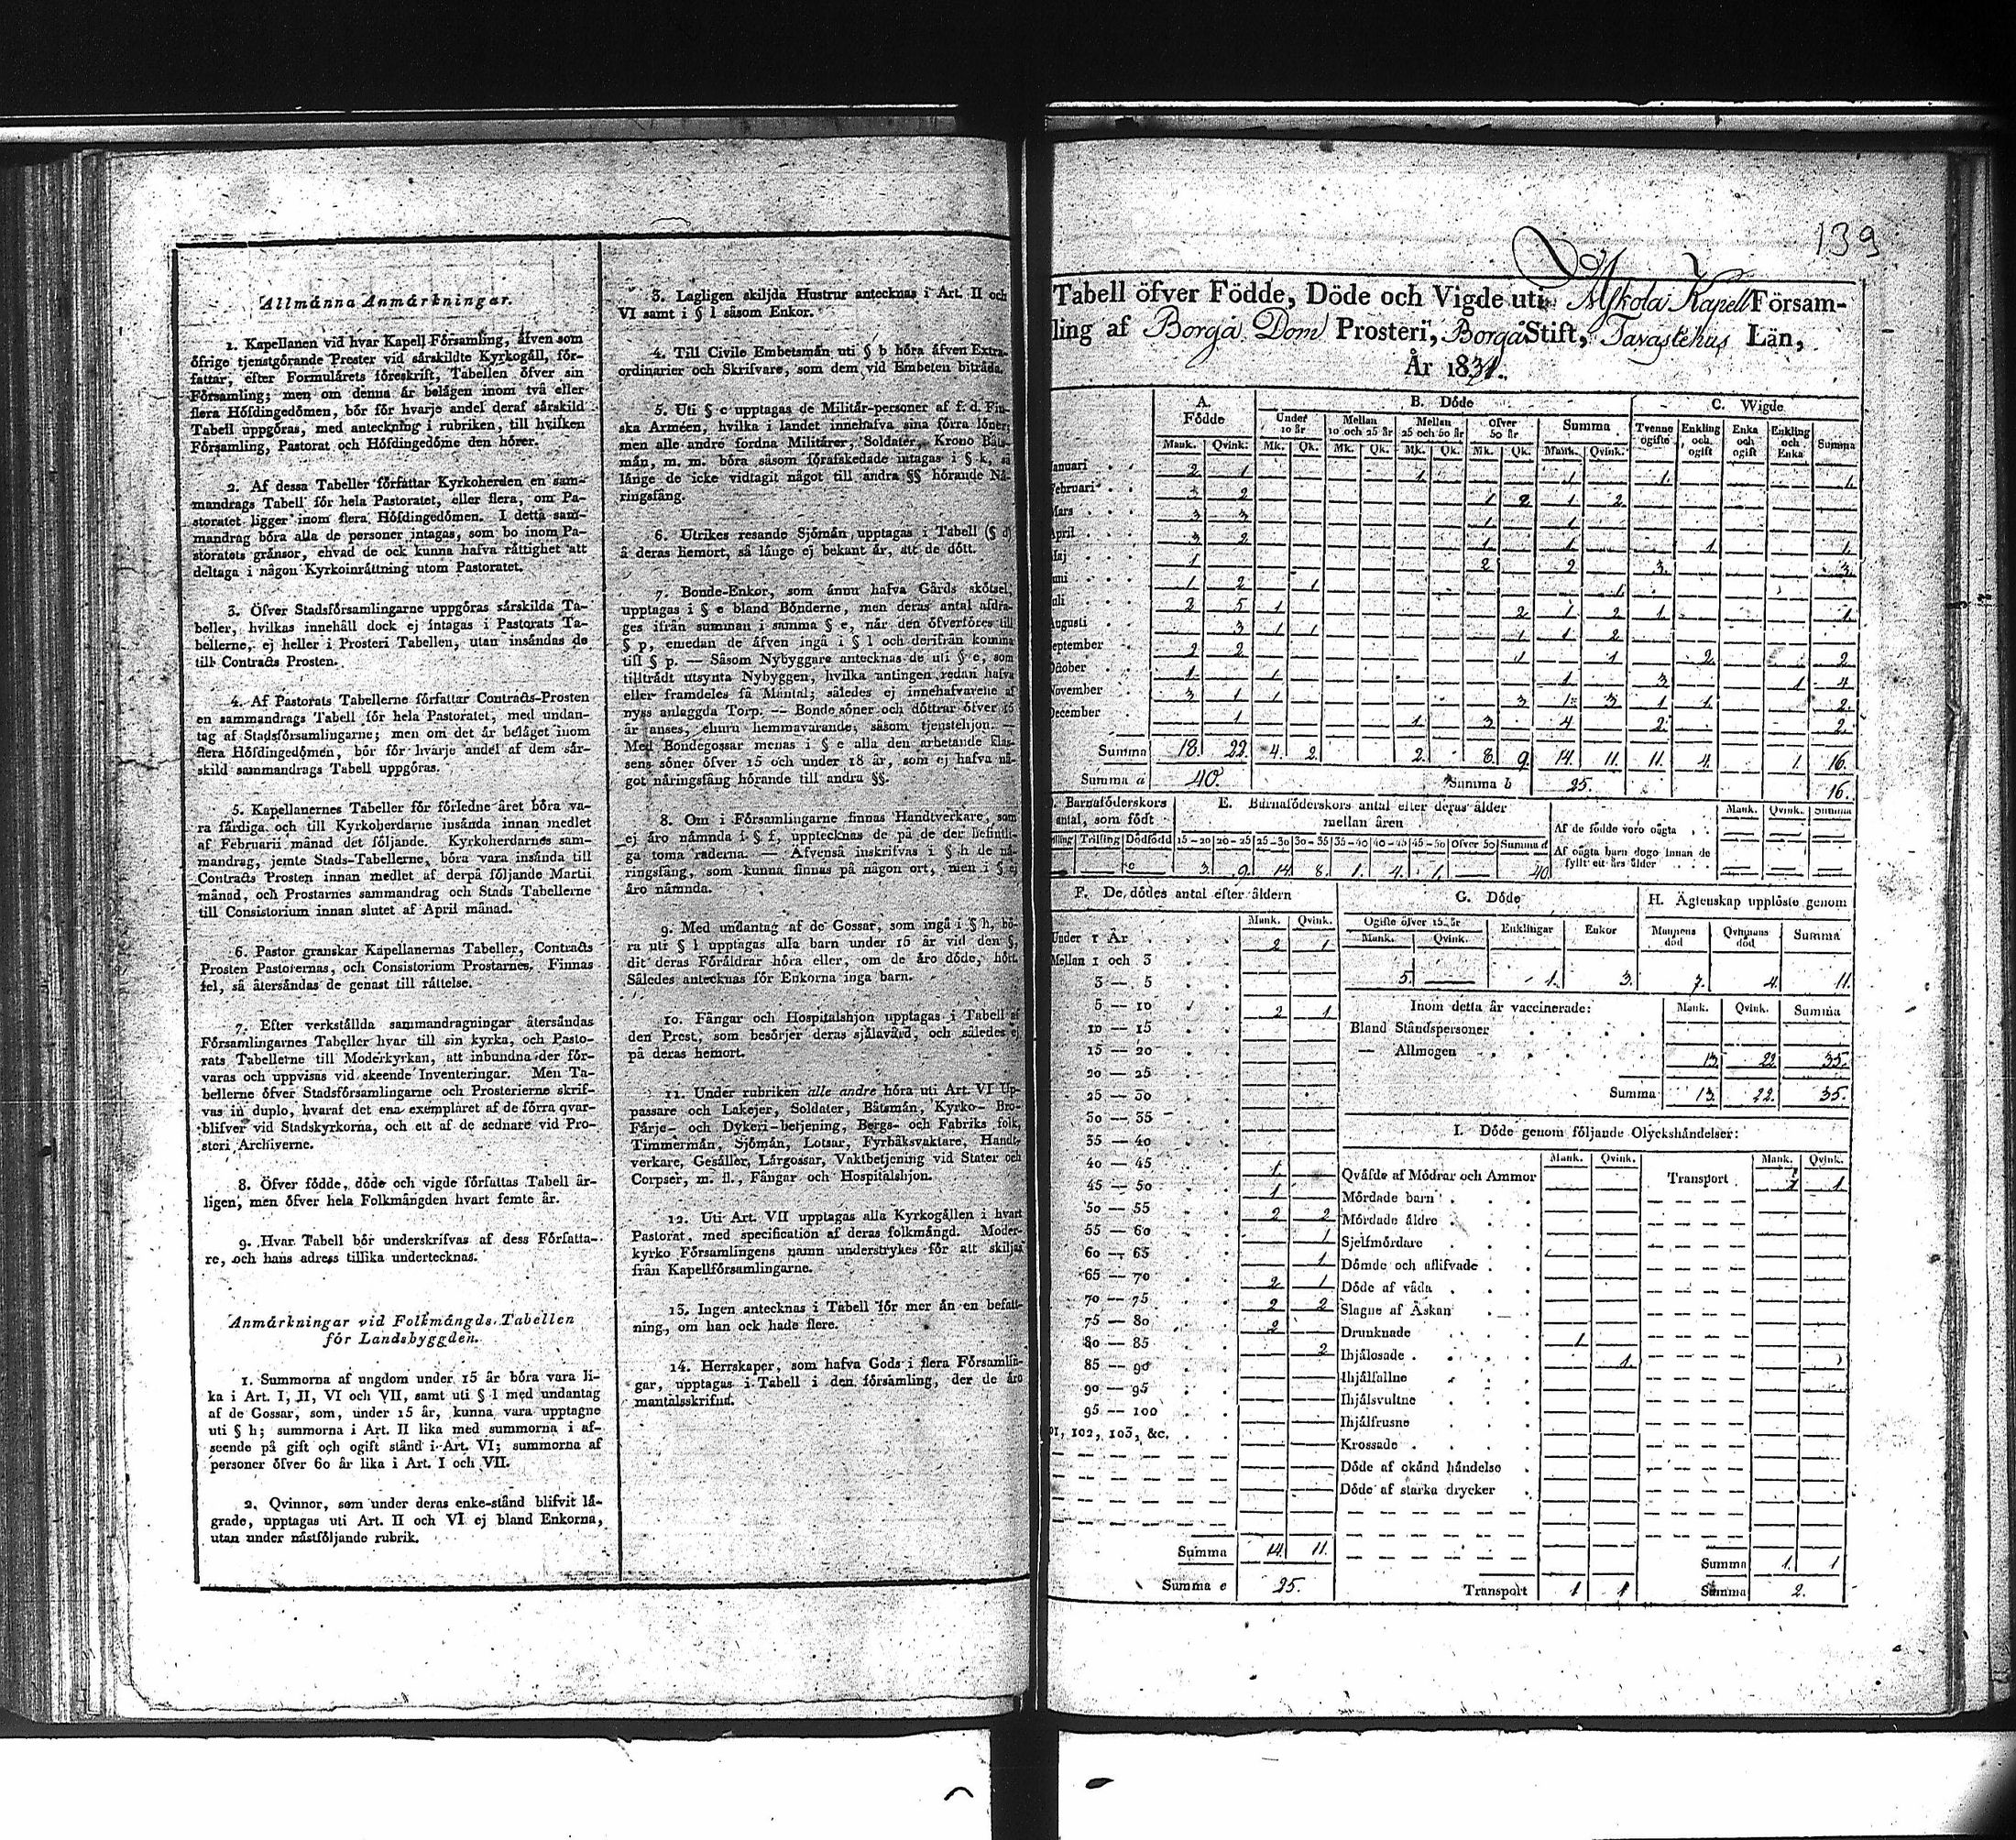 Allmánna Anmárkningar.
1. Kapellanen vid hvar Kapell Församling, äfven som
öfrige tjenstgörande Prester vid särskildte Kyrkogäll, för-
fattar, efter Formulärets föreskrift, Tabellen öfver sin
Församling; men om denna är belägen inom två eller
flera Höfdingedömen, bör för hvarje andel deraf särskild
Tabell uppgöras, med anteckning i rubriken, till hvilken
Församling, Pastorat och Höfdingedöme den hörer.
2. Af dessa Tabeller författar Kyrkoherden en sam-
mandrags Tabell för hela Pastoratet, eller flera, om Pa-
storatet ligger inom flera Höfdingedömen. I detta sam-
mandrag böra alla de personer intagas, som bo inom Pa-
storatets gränsor, ehvad de ock kunna hafva rättighet att
deltaga i någon Kyrkoinrättning utom Pastoratet.
3. Öfver Stadsförsamlingarne uppgöras särskilda Ta-
beller, hvilkas innehåll dock ej intagas i Pastorats Ta-
bellerne, ej heller i Prosteri Tabellen, utan insändas de
till Contracts Prosten.
4. Af Pastorats Tabellerne författar Contracts-Prosten
en sammandrags Tabell för hela Pastoratet, med undan-
tag af Stadsförsamlingarne; men om det är beläget inom
flera Höfdingedömen, bör för hvarje andel af dem sär-
skild sammandrags Tabell uppgöras.
5. Kapellanernes Tabeller för förledne året böra va-
ra färdiga och till Kyrkoherdarne insända innan medlet
af Februarii månad det följande. Kyrkoherdarnes sam-
mandrag, jemte Stads-Tabellerne, böra vara insända till
Contracts Prosten innan medlet af derpå följande Martii
månad, och Prostarnes sammandrag och Stads Tabellerne
till Consistorium innan slutet af April månad.
6. Pastor granskar Kapellanernas Tabeller, Contracts
Prosten Pastorernas, och Consistorium Prostarnes. Finnas
fel, så återsändas de genast till rättelse.
7. Efter verkställda sammandragningar återsändas
Församlingarnes Tabeller hvar till sin kyrka, och Pasto-
rats Tabellerne till Moderkyrkan, att inbundna der för-
varas och uppvisas vid skeende Inventeringar. Men Ta-
bellerne öfver Stadsförsamlingarne och Prosterierne skrif-
vas in duplo, hvaraf det ena exemplaret af de förra qvar-
blifver vid Stadskyrkorna, och ett af de sednare vid Pro-
steri Archiverne.
8. Öfver födde, döde och vigde författas Tabell år-
ligen, men öfver hela Folkmängden hvart femte år.
9. Hvar Tabell bör underskrifvas af dess Författa-
re, och hans adress tillika undertecknas.
Anmárkningar vid Folkmángds-Tabellen
för Landsbyggden.
1. Summorna af ungdom under 15 år böra vara li-
ka i Art. I, II, VI och VII, samt uti § l med undantag
af de Gossar, som, under 15 år, kunna vara upptagne
uti § h; summorna i Art. II lika med summorna i af-
seende på gift och ogift stånd i Art. VI; summorna af
personer öfver 60 år lika i Art. I och VII.
2. Qvinnor, som under deras enke-stånd blifvit lä-
grade, upptagas uti Art. II och VI ej bland Enkorna,
utan under nästföljande rubrik.
3. Lagligen skiljda Hustrur antecknas i Art. II och
VI samt i § l såsom Enkor.
4. Till Civile Embetsmän uti § b höra äfven Extra-
ordinarier och Skrifvare, som dem vid Embeten biträda.
5. Uti § c upptagas de Militär-personer af f. d. Fin-
ska Arméen, hvilka i landet innehafva sina förra löner;
men alle andre fordna Militärer, Soldater, Krono Båts-
män, m. m. böra såsom förafskedade intagas i § k, så
länge de icke vidtagit något till andra §§ hörande Nä-
ringsfång.
6. Utrikes resande Sjömän upptagas i Tabell (§ d)
å deras hemort, så länge ej bekant är, att de dött.
7. Bonde-Enkor, som ännu hafva Gårds skötsel,
upptagas i § e bland Bönderne, men deras antal afdra-
ges ifrån summan i samma § e, når den öfverföres till
§ p, emedan de äfven ingå i § l och derifrån komma
till § p. — Såsom Nybyggare antecknas de uti § e, som
tillträdt utsynta Nybyggen, hvilka antingen redan hafva
eller framdeles få Mantal; således ej innehafvarene af
nyss anlaggda Torp. — Bonde söner och döttrar öfver 15
år anses, ehuru hemmavarande, såsom tjenstehjon. —
Med Bondegossar menas i § e alla den arbetande klas-
sens söner öfver 15 och under 18 år, som ej hafva nå-
got näringsfång hörande till andra §§.
8. Om i Församlingarne finnas Handtverkare, som
ej äro nämnda i § f, upptecknas de på de der befintli-
ga toma raderna. — Äfvenså inskrifvas i § h de nä-
ringsfång, som kunna finnas på någon ort, men i § ej
äro nämnda.
9. Med undantag af de Gossar, som ingå i § h, bö-
ra uti § l upptagas alla barn under 15 år vid den §,
dit deras Föräldrar höra eller, om de äro döde, hört.
Således antecknas för Enkorna inga barn.
10. Fångar och Hospitalshjon upptagas i Tabell af
den Prest, som besörjer deras själavård, och således ej
på deras hemort.
11. Under rubriken alle andre höra uti Art. VI Up-
passare och Lakejer, Soldater, Båtsmän, Kyrko- Bro-
Färje- och Dykeri-betjening, Bergs- och Fabriks folk,
Timmermän, Sjömän, Lotsar, Fyrbåksvaktare, Handt-
verkare, Gesäller, Lärgossar, Vaktbetjening vid Stater och
Corpser, m. fl., Fångar och Hospitalshjon.
12. Uti Art. VII upptagas alla Kyrkogällen i hvart
Pastorat, med specification af deras folkmängd. Moder-
kyrko Församlingens namn understrykes för att skiljas
från Kapellförsamlingarne.
13. Ingen antecknas i Tabell för mer än en befatt-
ning, om han ock hade flere.
14. Herrskaper, som hafva Gods i flera Församlin-
gar, upptagas i Tabell i den församling, der de äro
mantalsskrifne.
139
Tabell öfver Födde, Döde och Vigde uti Askola Kapell Församl-
ling af Borgå Dom Prosteri, Borgå Stift, Tavastehus Län,
År 1831.
A. Födde B. Döde C. Wigde
Under 10 år Mellan 10 och 25 år Mellan 25 och 50 år öfver 50 år Summa Tvenne ogifte Enkling och ogift Enka och ogift Enkling och Enka Summa
Mank. Qvink. Mk. Qk. Mk. Qk. Mk. Qk. Mk. Qk. Mank. Qvink.
Januari 2 1 1 1 1. 1.
Februari 3 2 1 2 1 2
Mars 3 3 1 1
April 3 2 1 1 1 1.
Maj 1 2 2 3. 3.
Juni 1 2 1 1
Juli 2 5 1 2 1 2 1 1
Augusti 3 1 1 1 1 2
September 2 2 1 1 2 2
October 1 1 1 3 1 4
November 3 1 1 3 1 3 1 1 2.
December 1 1 3 4 2 2.
Summa 18. 22. 4. 2. 2. 8. 9. 14. 11. 11. 4. 1. 16.
Summa a 40. Summa b 25. 16.
D. Barnaföderskors antal, som födt
E. Barnaföderskors antal efter deras ålder mellan åren
Tvilling Trilling Dödfödd 15-20 20-25 25-30 30-35 35-40 40-45 45-50 Öfver 50 Summa d
3. 9. 14. 8. 1. 4. 1. 40
Mank. Qvink. Summa
Af de födde voro oägta
Af oägta barn dogo innan de
fyllt ett års ålder
F. De dödes antal efter åldern
Mank. Qvink.
Under 1 År 2 1
Mellan 1 och 3
3 — 5
5 — 10 2 1
10 — 15
15 — 20
20 — 25
25 — 30
30 — 35
35 — 40
40 — 45 1.
45 — 50 1
50 — 55 2 2
55 — 60 1
60 — 65 1
65 — 70 2 1
70 — 75 2 2
75 — 80 2
80 — 85 2
85 — 90
90 — 95
95 — 100
101, 102, 103, &c.
Summa 14. 11.
Summa e 25.
G. Döde
Ogifte öfver 15 år Enklingar Enkor
Mank. Qvink.
5. 1. 3.
H. Ägtenskap upplöste genom
Mannens död Qvinnans död Summa
7. 4. 11.
Inom detta år vaccinerade: Mank. Qvink. Summa
Bland Ståndspersoner
— Allmogen 13. 22. 35.
Summa 13. 22. 35.
I. Döde genom följande Olyckshändelser:
Mank. Qvink. Mank. Qvink.
Qväfde af Mödrar och Ammor Transport 1 1
Mördade barn
Mördade äldre
Sjelfmördare
Dömde och aflifvade
Döde af våda
Slagne af Åskan
Drunknade 1
Ihjälosade 1.
Ihjälfallne
Ihjälsvultne
Ihjälfrusne
Krossade
Döde af okänd händelse
Döde af starka drycker
Summa 1. 1
Transport 1 1 Summa 2.